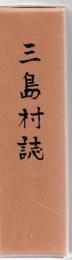 三島村誌